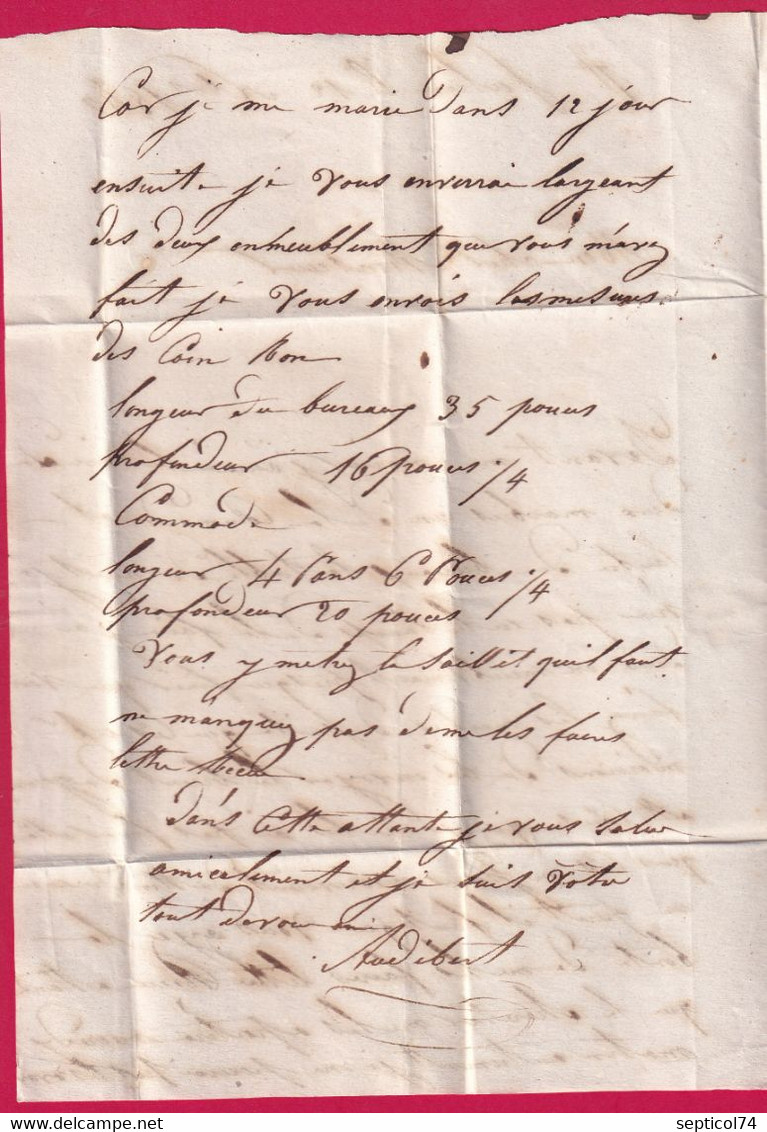 Car je me marie dans 12 jour
ensuite je vous enverrai largeant
des deux enmeublement que vous m'avez
fait je vous envois les mesures
des Coin
longeur du bureaux 35 pouces
profondeur 16 pouces ./4
Commode
longeur 4 Pans 6 Pouces ./4
profondeur 20 pouces
Vous y metrez la qu'il faut
ne manquez pas de me les faires
lettre
dans cette attante je vous salue
amicalement et je suis votre
tout devoué ami
Audibert
www.delcampe.net
septicol74